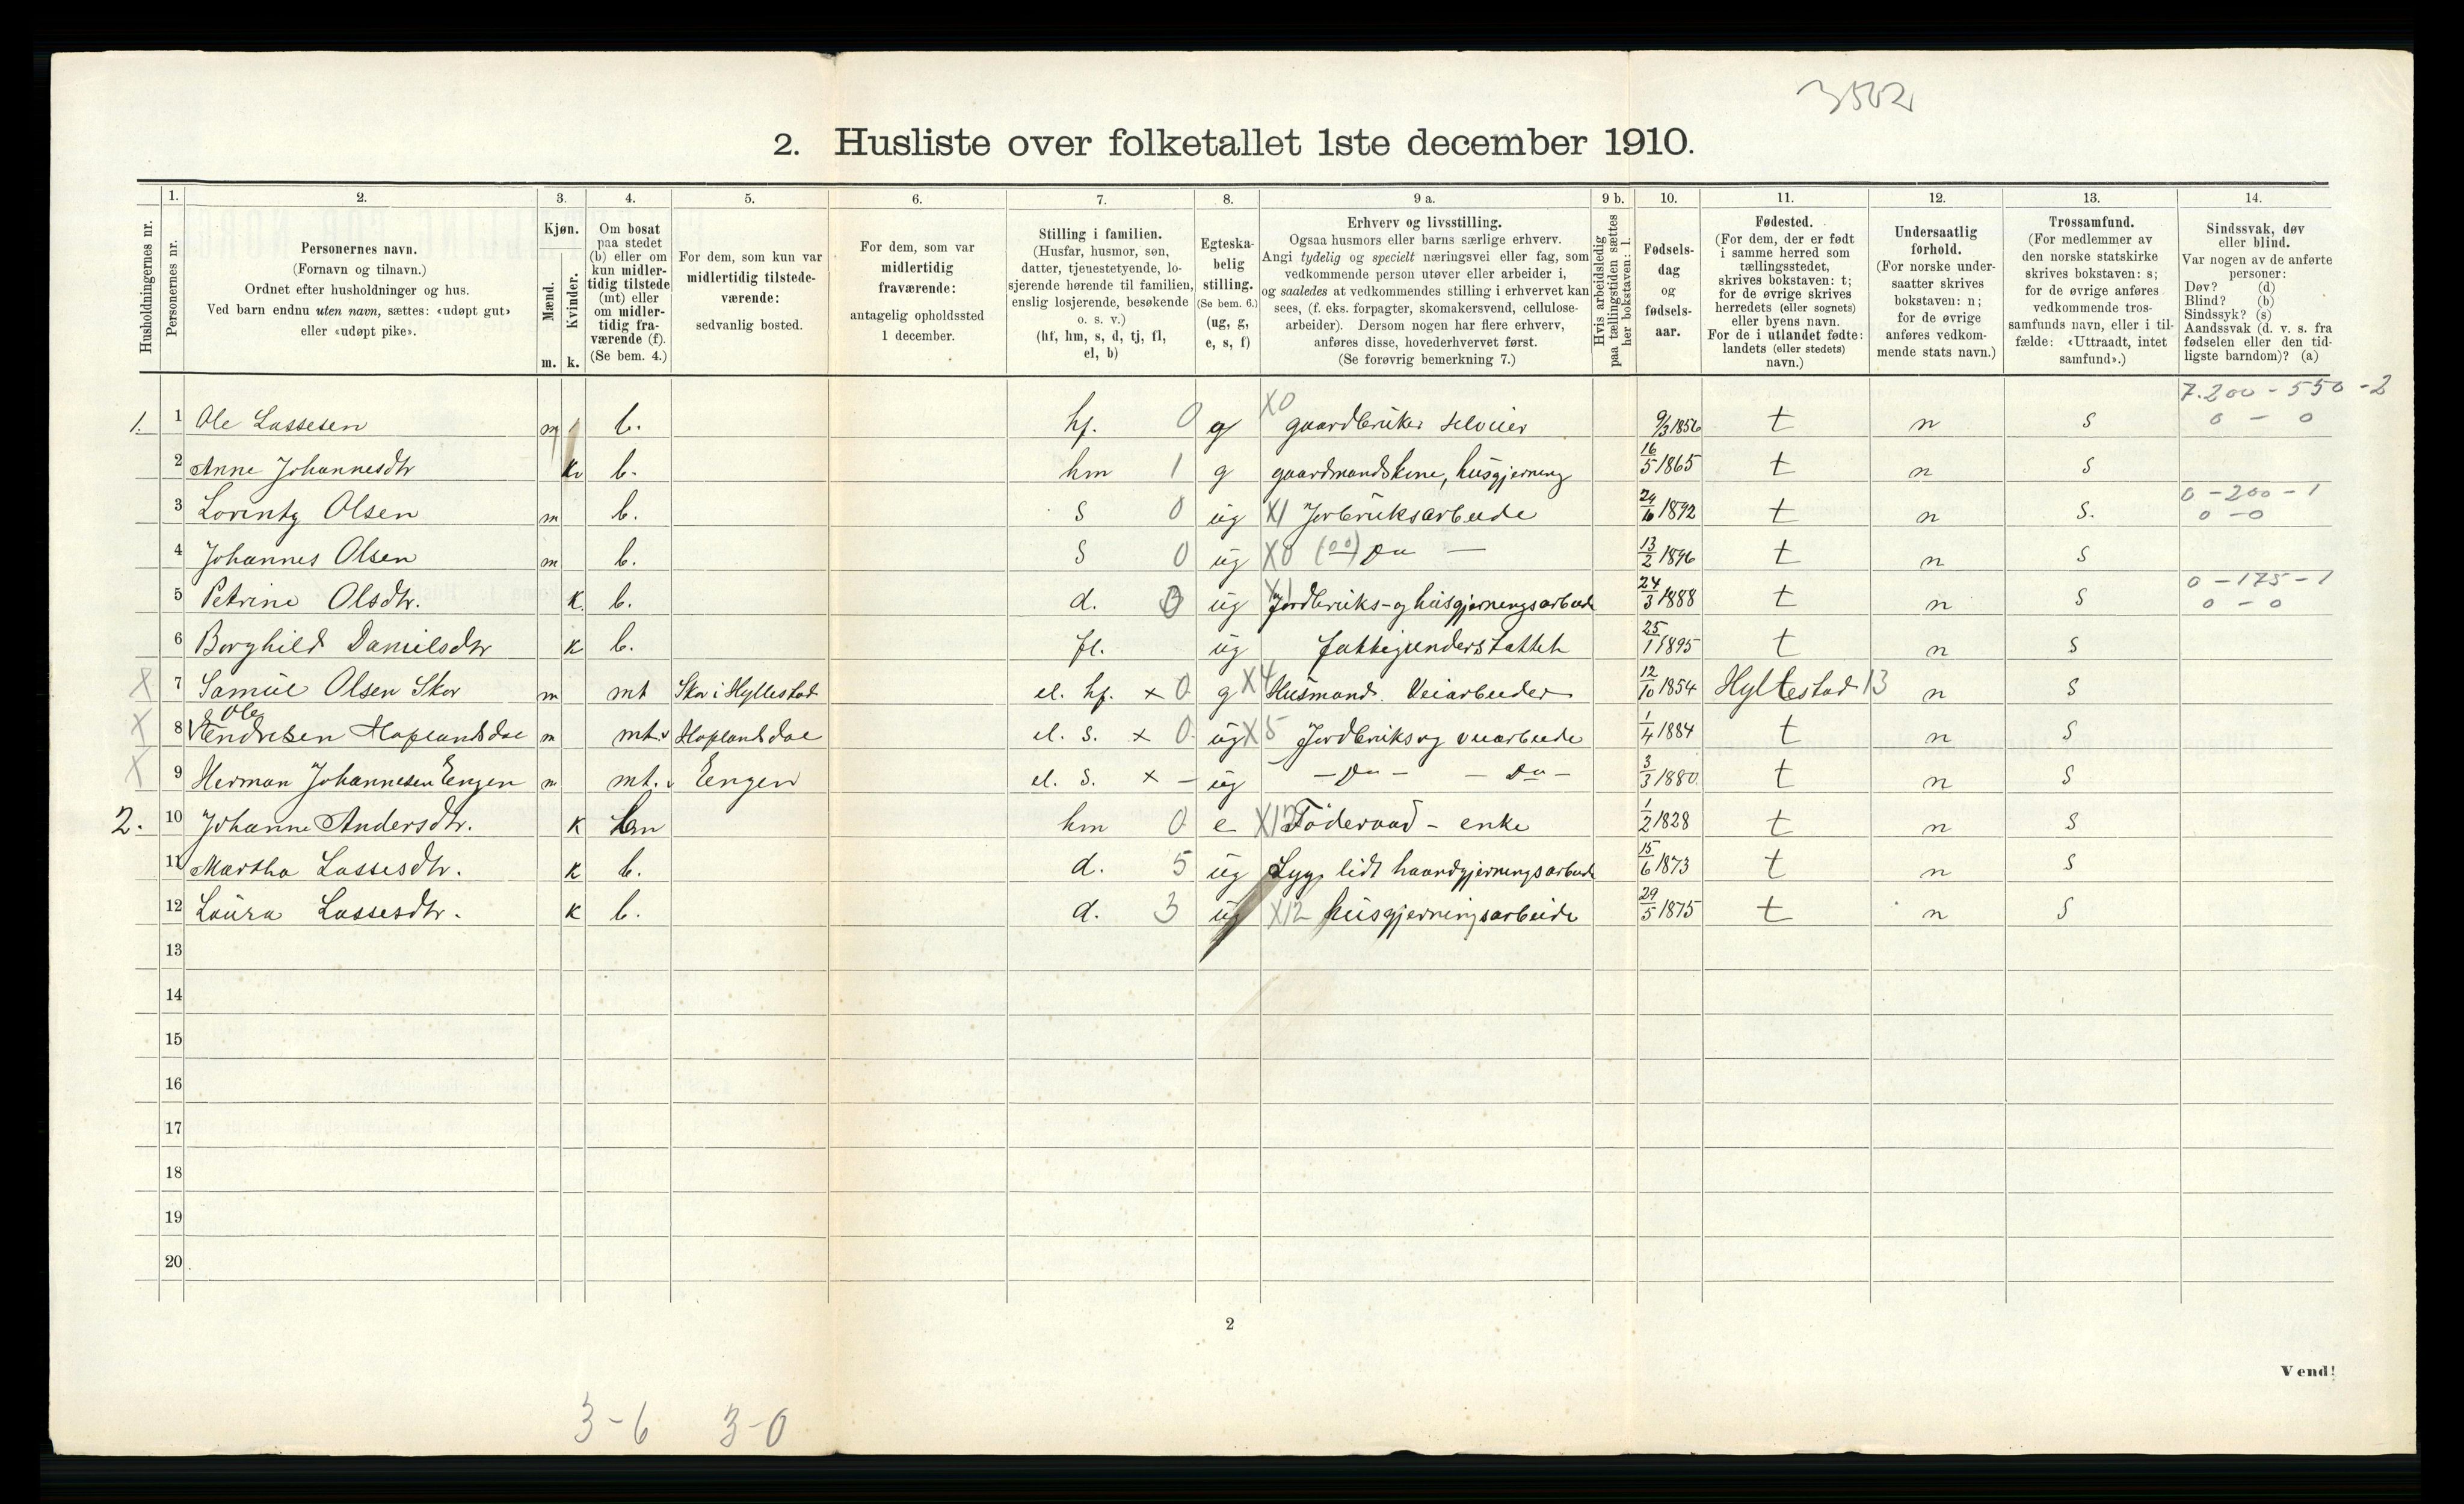 3502
2. Husliste over folketallet 1ste december 1910.
Husholdningernes nr.
1.
Personernes nr.
2.
Personernes navn.
(Fornavn og tilnavn.)
Ordnet efter husholdninger og hus.
Ved barn endnu uten navn, sættes: «udøpt gut»
eller «udøpt pike».
3.
Kjøn.
Mænd.
Kvinder.
m. k.
4.
Om bosat
paa stedet
(b) eller om
kun midler-
tidig tilstede
(mt) eller
om midler-
tidig fra-
værende (f).
(Se bem. 4.)
5.
For dem, som kun var
midlertidig tilstede-
værende:
sedvanlig bosted.
6.
For dem, som var
midlertidig
fraværende:
antagelig opholdssted
1 december.
7.
Stilling i familien.
(Husfar, husmor, søn,
datter, tjenestetyende, lo-
sjerende hørende til familien,
enslig losjerende, besøkende
o. s. v.)
(hf, hm, s, d, tj, fl,
el, b)
8.
Egteska-
belig
stilling.
(Se bem. 6.)
(ug, g,
e, s, f)
9 a.
Erhverv og livsstilling.
Ogsaa husmors eller barns særlige erhverv.
Angi tydelig og specielt næringsvei eller fag, som
vedkommende person utøver eller arbeider i,
og saaledes at vedkommendes stilling i erhvervet kan
sees, (f. eks. forpagter, skomakersvend, cellulose-
arbeider). Dersom nogen har flere erhverv,
anføres disse, hovederhvervet først.
(Se forøvrig bemerkning 7.)
9 b.
Hvis arbeidsledig
paa tællingstiden sættes
her bokstaven: l.
10.
Fødsels-
dag
og
fødsels-
aar.
11.
Fødested.
(For dem, der er født
i samme herred som
tællingsstedet,
skrives bokstaven: t;
for de øvrige skrives
herredets (eller sognets)
eller byens navn.
For de i utlandet fødte:
landets (eller stedets)
navn.)
12.
Undersaatlig
forhold.
(For norske under-
saatter skrives
bokstaven: n;
for de øvrige
anføres vedkom-
mende stats navn.)
13.
Trossamfund.
(For medlemmer av
den norske statskirke
skrives bokstaven: s;
for de øvrige anføres
vedkommende tros-
samfunds navn, eller i til-
fælde: «Uttraadt, intet
samfund».)
14.
Sindssvak, døv
eller blind.
Var nogen av de anførte
personer:
Døv? (d)
Blind? (b)
Sindssyk? (s)
Aandssvak (d. v. s. fra
fødselen eller den tid-
ligste barndom)? (a)
7.200 - 550 - 2
1. 1 Ole Lassesen m b. hf. 0 g X0 gaardbruker selveier 9/3 1856 t n s 0 - 0
2 Anne Johannesdtr k b. hm 1 g gaardmandskone, husgjerning 16/5 1865 t n s
0 - 200 - 1
3 Lorentz Olsen m b. s 0 ug X1 Jorbruksarbeide 24/6 1892 t n s. 0 - 0
4 Johannes Olsen m b. s 0 ug X0 (00) Do — 13/2 1896 t n s
0 - 175 - 1
5 Petrine Olsdtr. k. b. d. 3 ug X1 Jordbruks- og husgjerningsarbeide 24/3 1888 t n s 0 - 0
6 Borghild Danielsdtr k b. fl. ug fattigunderstøttet 25/1 1895 t n s
X 7 Samuel Olsen Skor m mt Skor i Hyllestad el. hf. x 0 g X4 Husmand. Veiarbeider 12/10 1854 Hyllestad 13 n s
Ole
X 8 Endresen Hoplandsdal m mt. Hoplandsdal el. s. x 0 ug X5 Jordbruks og veiarbeide 1/4 1884 t n s
X 9 Herman Johannesen Engen m mt. Eengen el. s. x - ug - Do - - Do - 3/3 1880 t n s
2. 10 Johanne Andersdtr. k hm 0 e X12 Föderaad - enke 1/2 1828 t n s
11 Martha Lassesdtr. k b. d. 5 ug Syg, lidt haandgjerningsarbeide 15/6 1873 t n s
12 Laura Lassesdtr. k b. d. 3 ug X12 husgjerningsarbeide 29/5 1875 t n s
13
14
15
16
17
18
19
20
2
Vend!
3-6 3-0